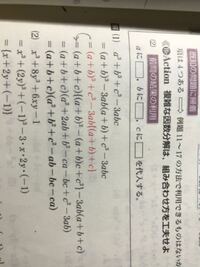 項は4つある ⇨ 例題 11~17 の方法で利用できるものはないか
《Action 複雑な因数分解は，組み合わせ方を工夫せよ
(2) 前問の結果の利用
aに□，bに□，cに□を代入する。
解 (1) a³+b³+c³-3abc
=(a+b)³-3ab(a+b)+c³-3abc
=(a+b)³+c³-3ab{(a+b)+c}
={(a+b)+c}{(a+b)²-(a+b)c+c²}-3ab(a+b+c)
=(a+b+c)(a²+2ab+b²-ca-bc+c²-3ab)
=(a+b+c)(a²+b²+c²-ab-bc-ca)
(2) x³+8y³+6xy-1
=x³+(2y)³+(-1)³-3·x·2y·(-1)
={x+2y+(-1)}